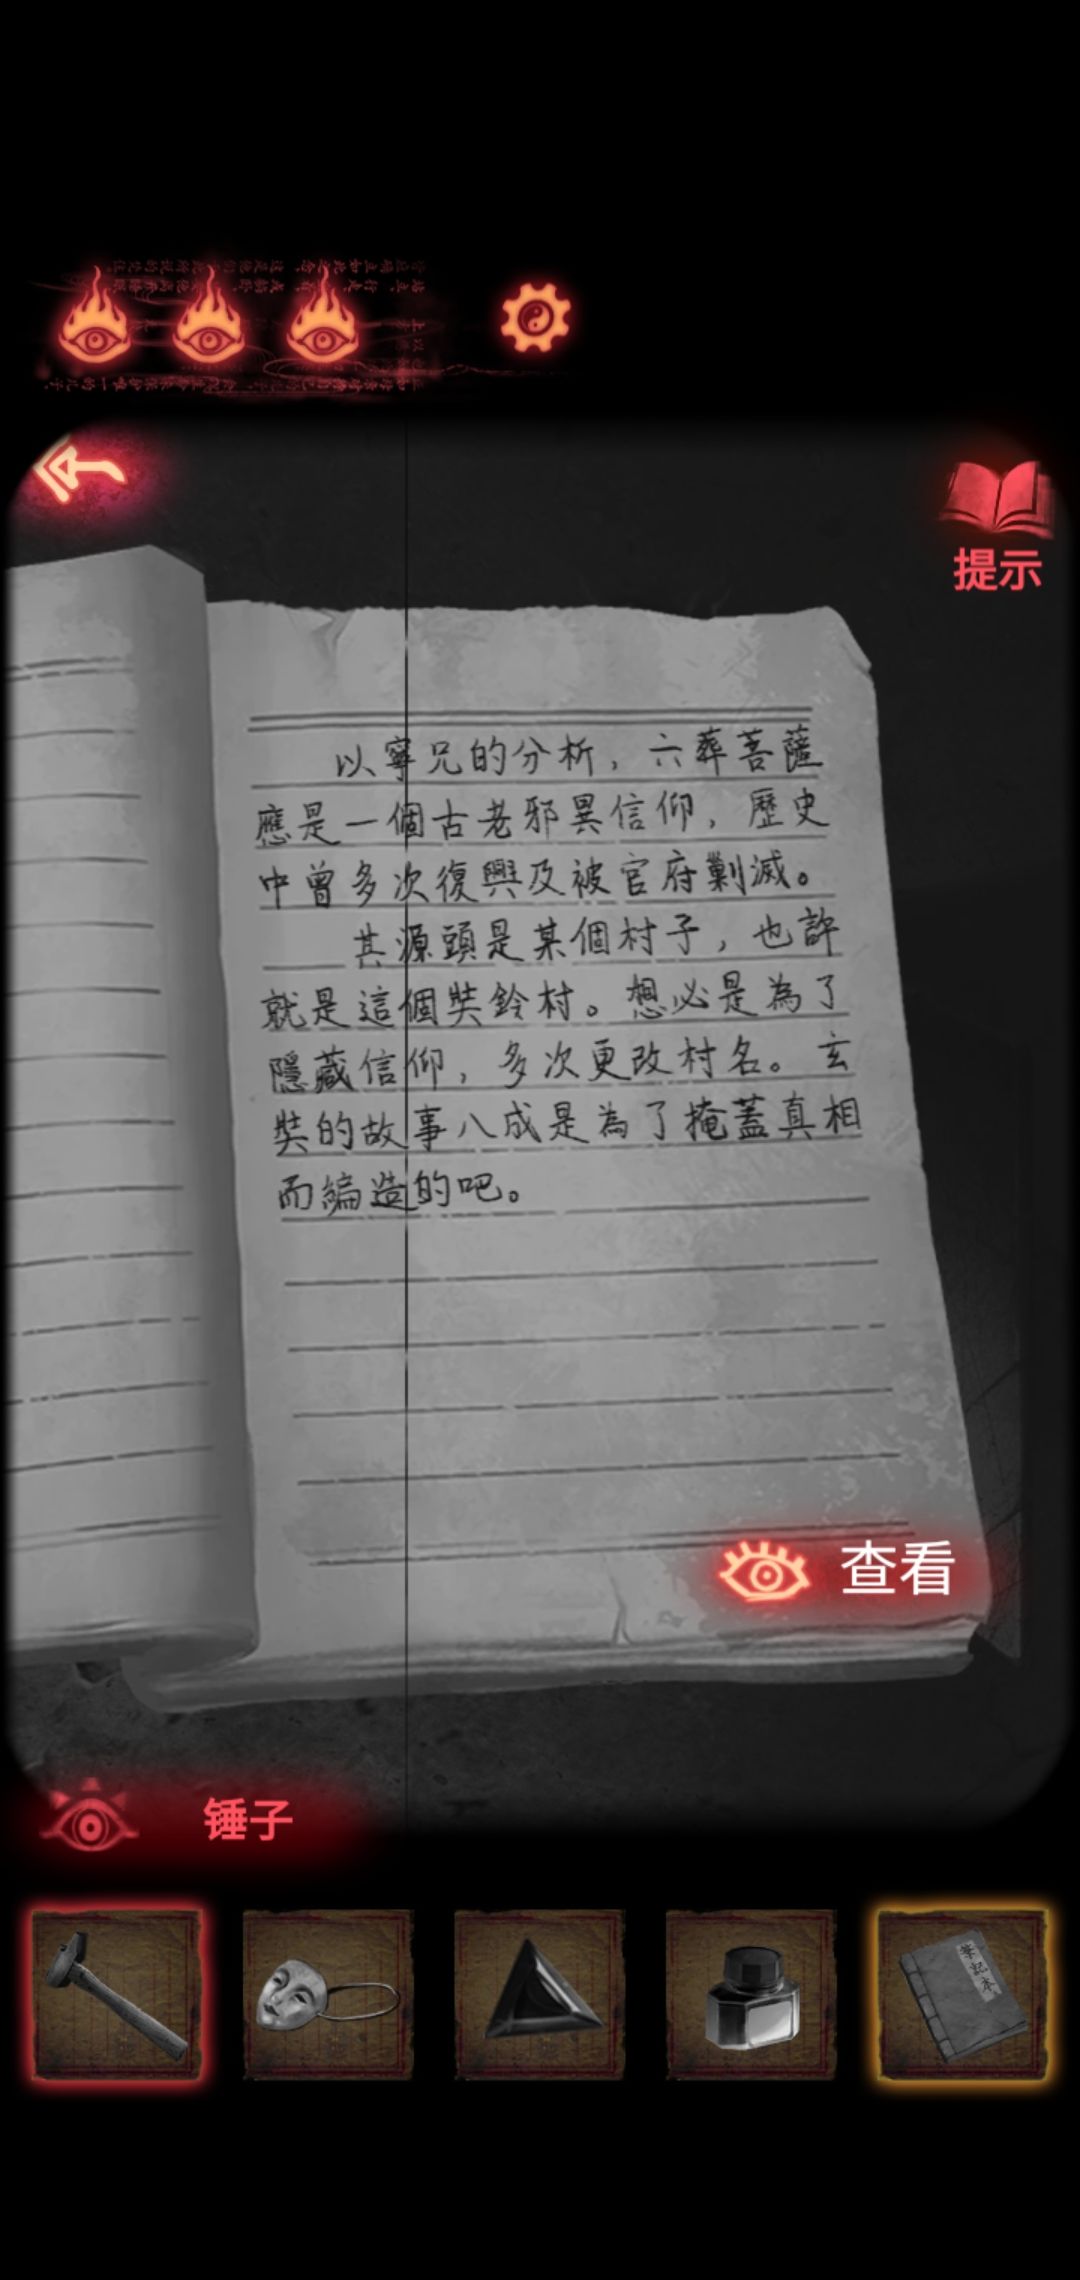 提示
以寧兄的分析，六葬菩薩
應是一個古老邪異信仰，歷史
中曾多次復興及被官府剿滅。
其源頭是某個村子，也許
就是這個奘鈴村。想必是為了
隱藏信仰，多次更改村名。玄
奘的故事八成是為了掩蓋真相
而編造的吧。
查看
锤子
筆記本